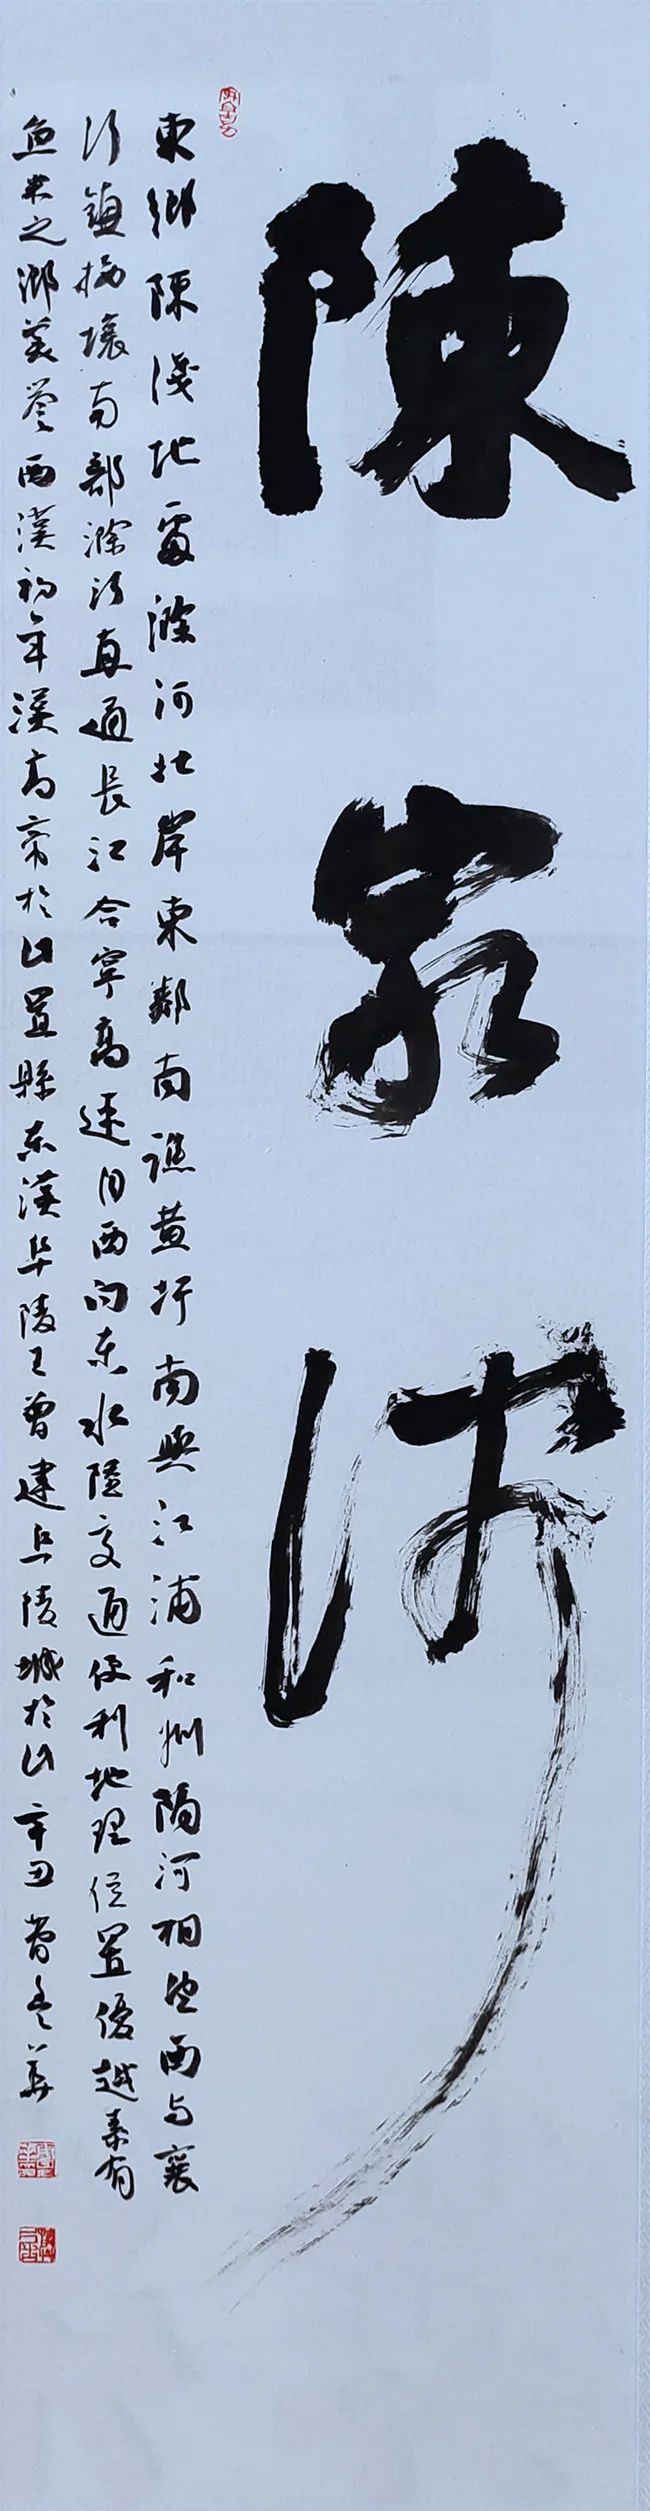 陳家淺
東鄉陳淺地處滁河北岸東鄰南譙黄圩南與江浦和州隔河相望西与襄
河鎮接壤南部滁河直通長江合寧高速自西向東水陸交通便利地理位置優越素有
魚米之鄉美誉西漢初年漢高帝於此置縣東漢阜陵王曾建阜陵城於此辛丑